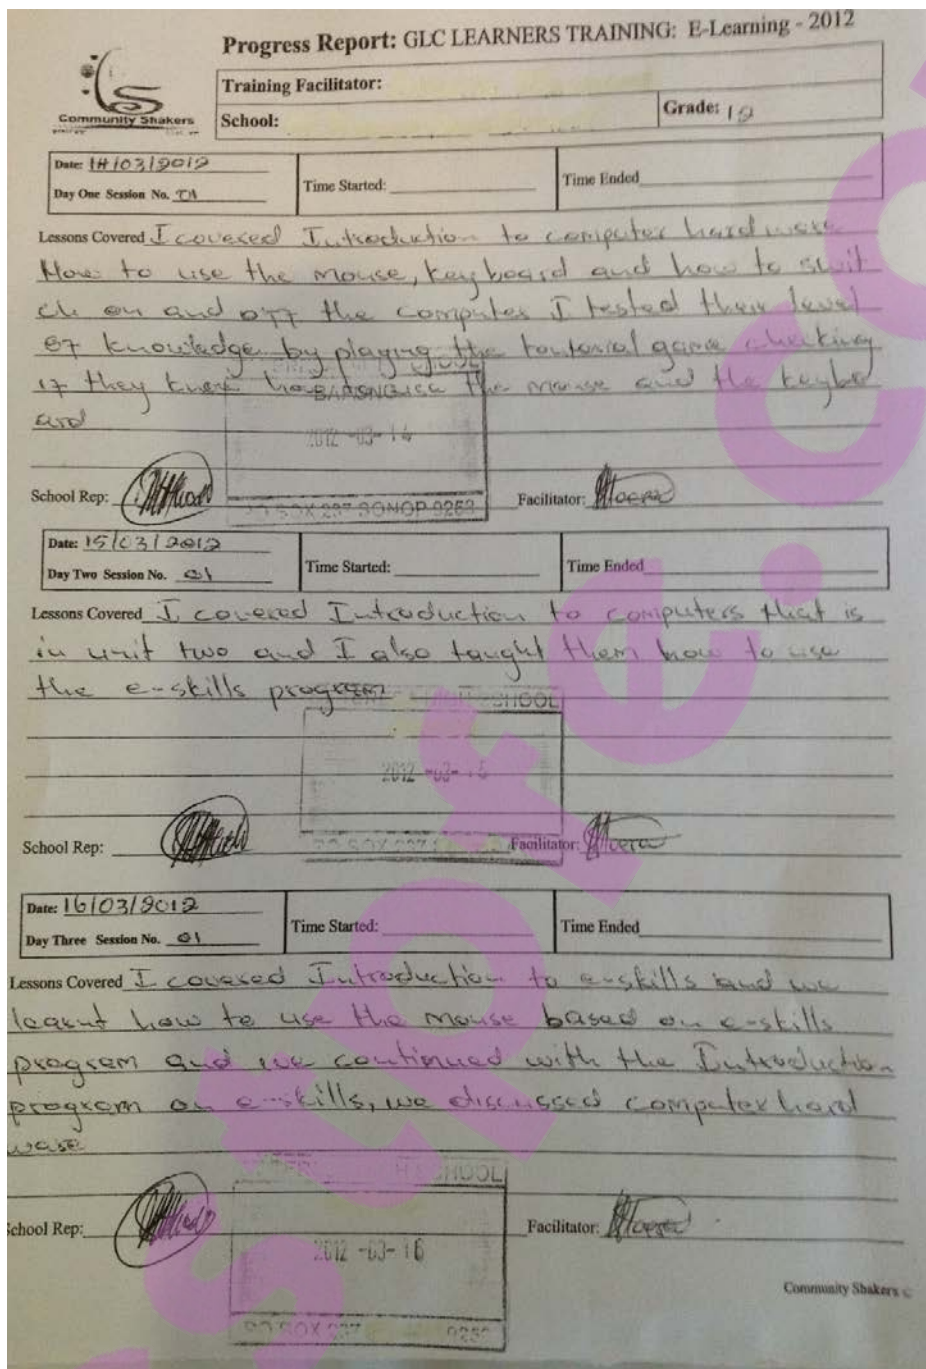 Progress Report: GLC LEARNERS TRAINING: E-Learning - 2012
Community Shakers
Training Facilitator:
School:
Grade: 12
Date: 14/03/2012
Day One Session No. 01
Time Started:
Time Ended
Lessons Covered I covered Introduction to computer hardware
How to use the mouse, keyboard and how to swit
ch on and off the computer I tested their level
of knowledge by playing the toutorial game checking
if they know how use the mouse and the keybo
ard
2012 -03- 14
School Rep:
Facilitator:
PO BOX 237 SONOP 9258
Date: 15/03/2012
Day Two Session No. 01
Time Started:
Time Ended
Lessons Covered I covered Introduction to computers that is
in unit two and I also taught them how to use
the e-skills program
HIGH SCHOOL
2012 -03- 15
School Rep:
Facilitator:
PO BOX 237
Date: 16/03/2012
Day Three Session No. 01
Time Started:
Time Ended
Lessons Covered I covered Introduction to e-skills and we
learnt how to use the mouse based on e-skills
program and we continued with the Introduction
program on e-skills, we discussed computer hard
ware
H SCHOOL
School Rep:
Facilitator:
2012 -03- 16
Community Shakers ©
PO BOX 237